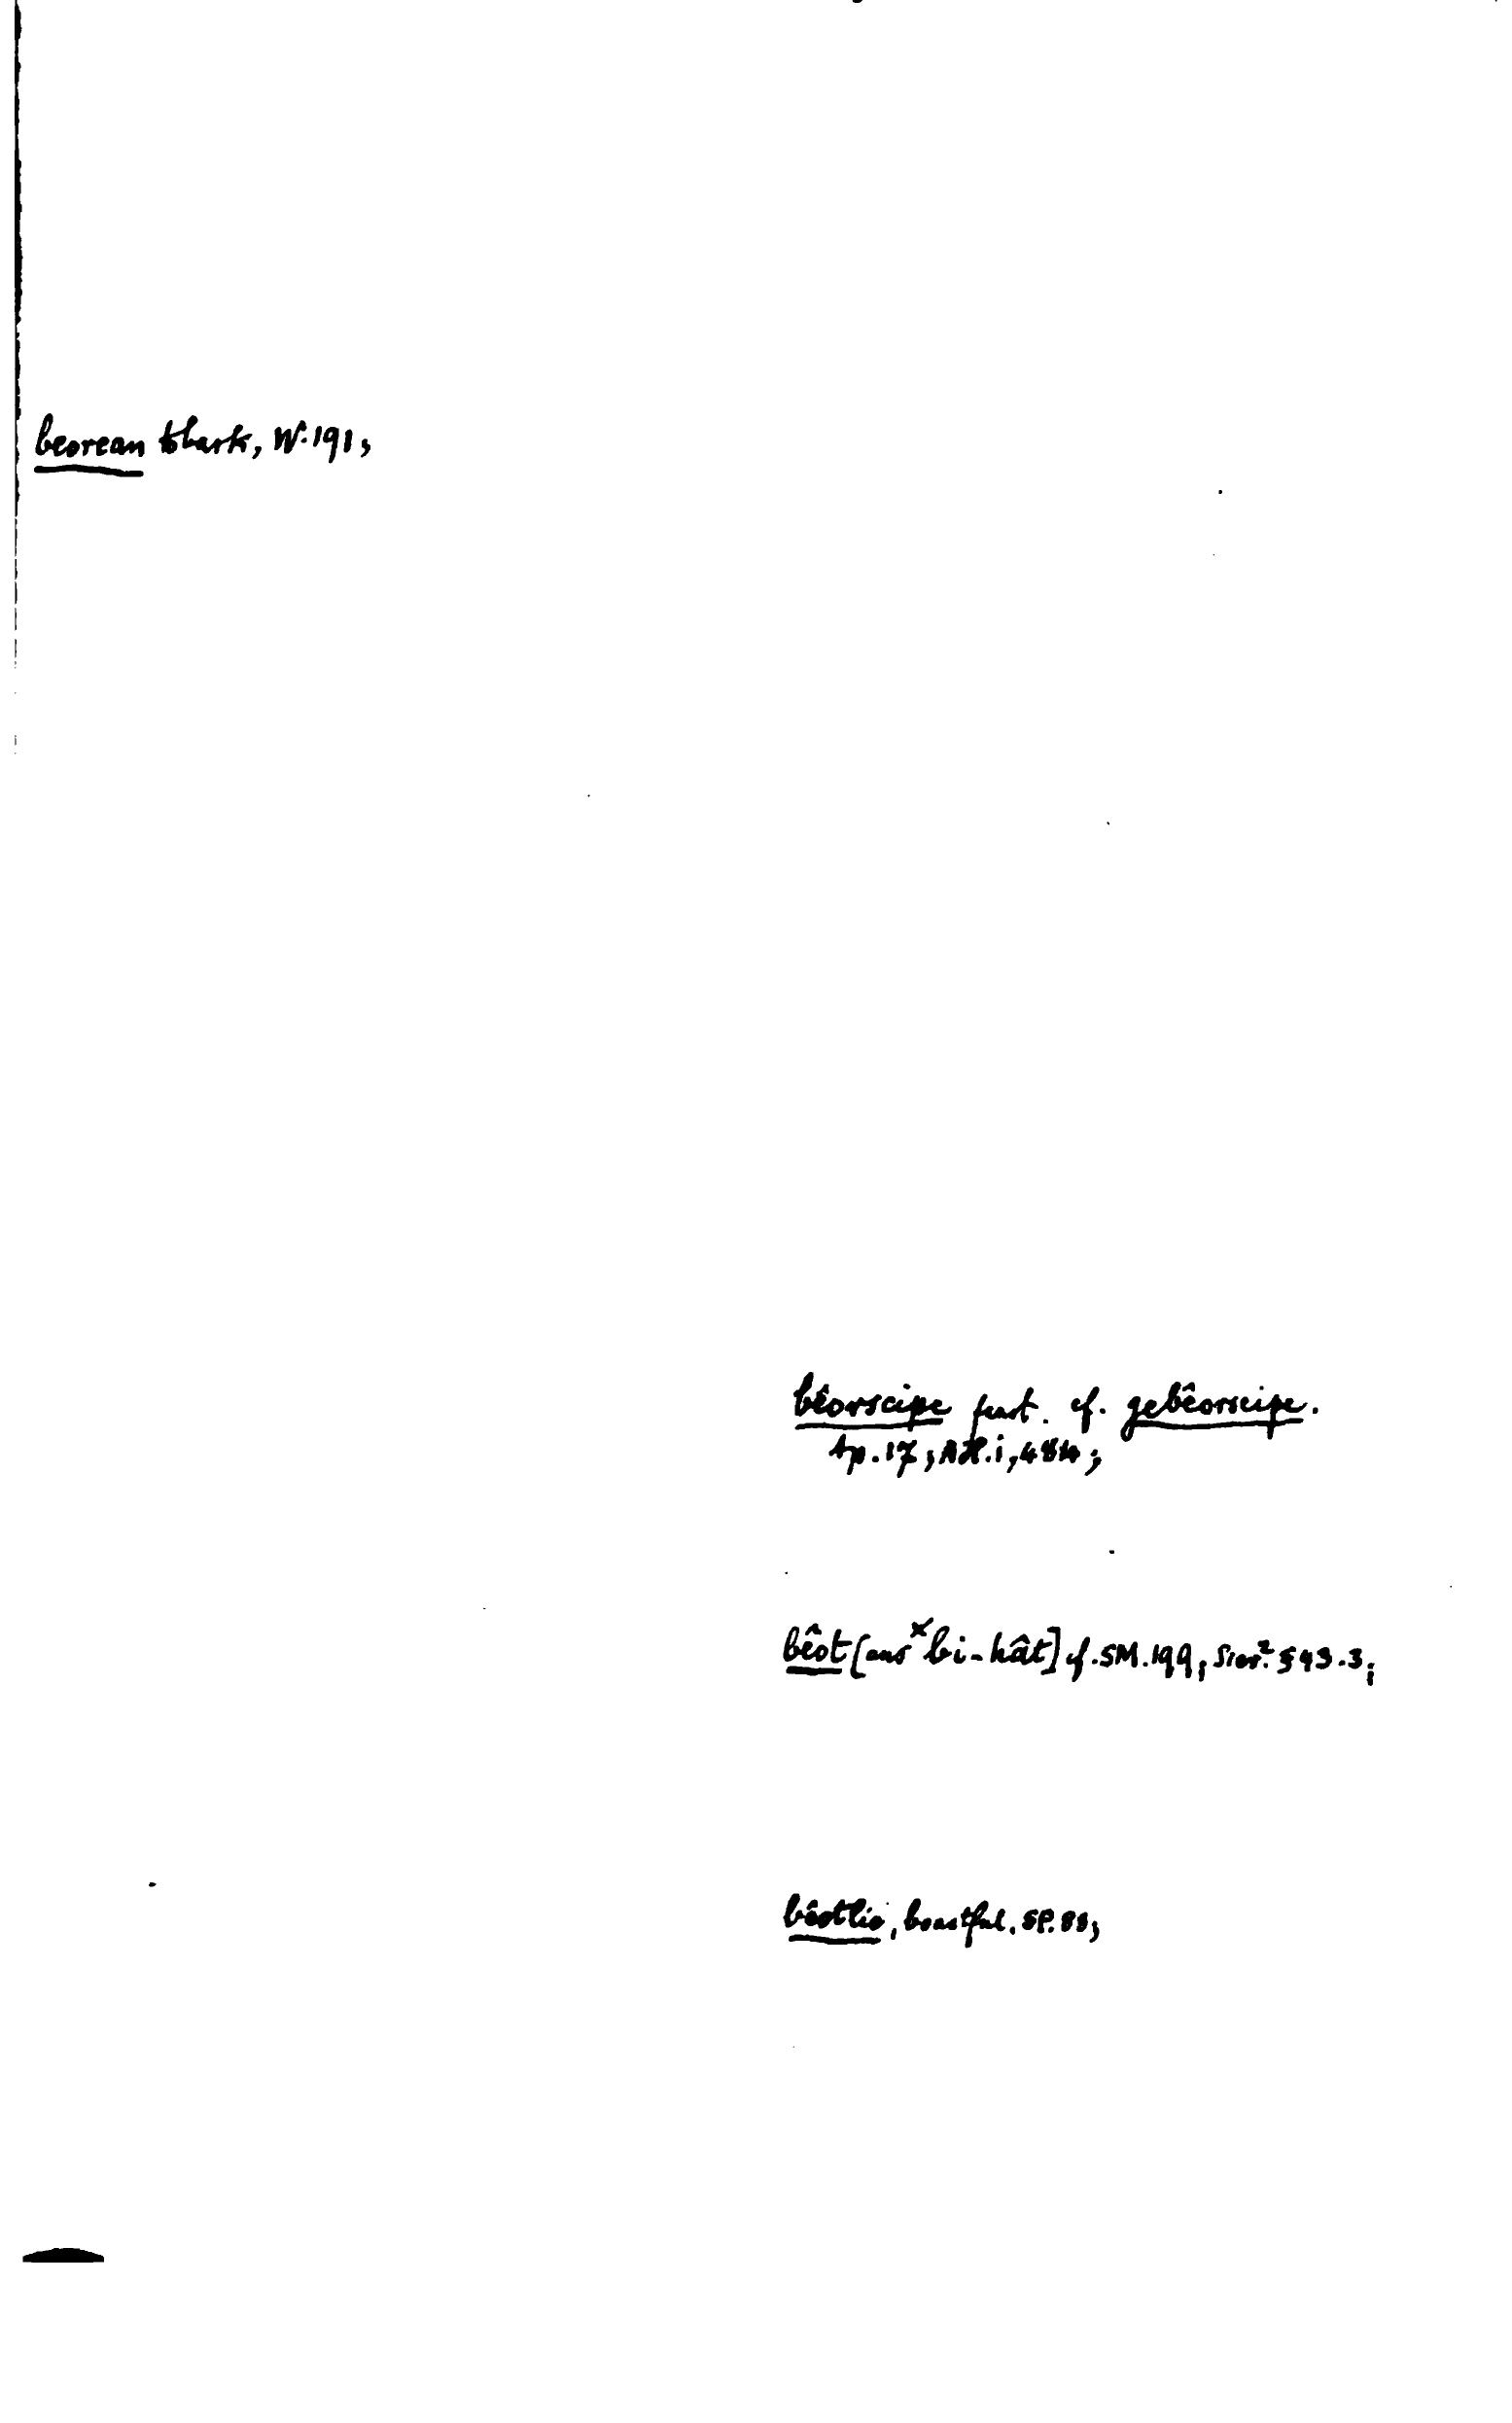 beorcan to bark, W. 191;
bêorscipe feast. cf. gebêorscipe.
Ap. 17; AH. i, 484;
bêot [aus *bi-hât] cf. SM. 199; Siev.² § 43.3;
bêotlic, boastful. SP. 88;